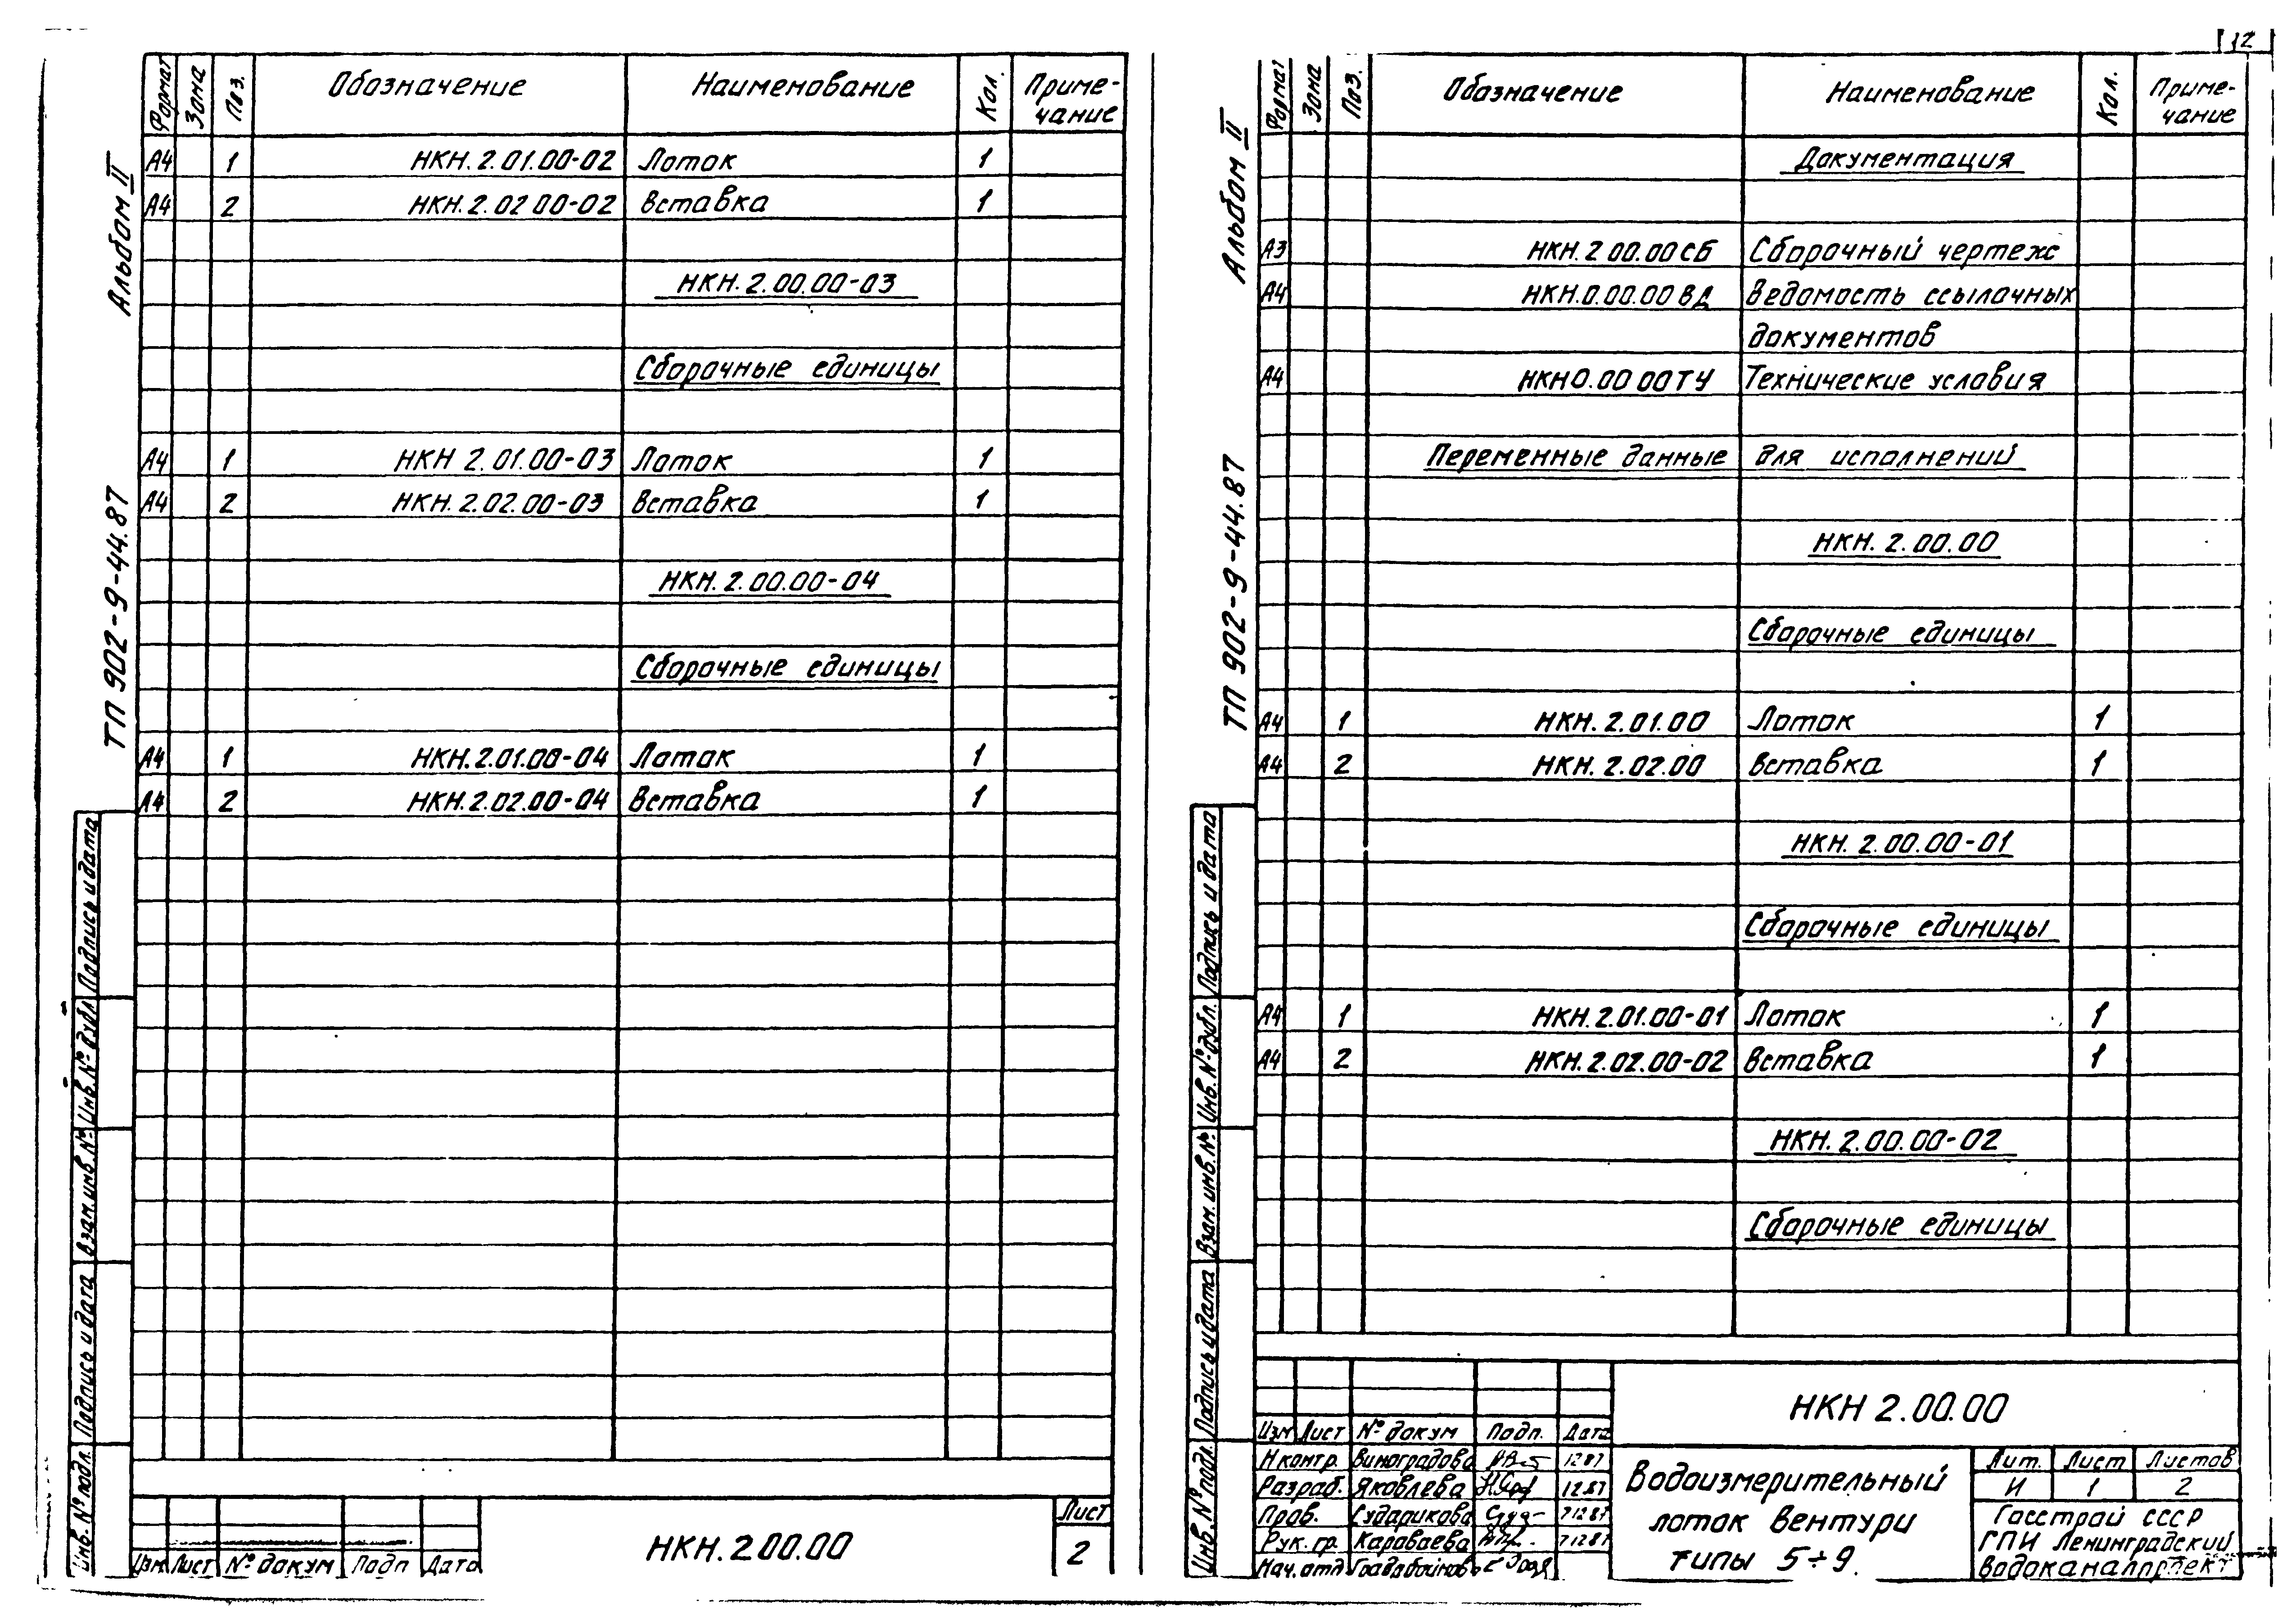 12
Альбом II
ТП 902-9-44.87
Формат Зона Поз. Обозначение Наименование Кол. Приме-
чание
А4 1 НКН.2.01.00-02 Лоток 1
А4 2 НКН.2.02 00-02 Вставка 1
НКН.2.00.00-03
Сборочные единицы
А4 1 НКН 2.01.00-03 Лоток 1
А4 2 НКН.2.02.00-03 Вставка 1
НКН.2.00.00-04
Сборочные единицы
А4 1 НКН.2.01.00-04 Лоток 1
А4 2 НКН.2.02.00-04 Вставка 1
Подпись и дата
Инв.№ дубл
Взам.инв.№
Подпись и дата
Инв.№ подл.
Изм Лист № докум Подп Дата
НКН.2.00.00
Лист
2
Альбом II
ТП 902-9-44.87
Формат Зона Поз. Обозначение Наименование Кол. Приме-
чание
Документация
А3 НКН.2 00.00 СБ Сборочный чертеж
А4 НКН.0.00.00 ВД Ведомость ссылочных
документов
А4 НКН 0.00 00 ТУ Технические условия
Переменные данные для исполнений
НКН.2.00.00
Сборочные единицы
А4 1 НКН.2.01.00 Лоток 1
А4 2 НКН.2.02.00 Вставка 1
НКН.2.00.00-01
Сборочные единицы
А4 1 НКН.2.01.00-01 Лоток 1
А4 2 НКН.2.02.00-02 Вставка 1
НКН.2.00.00-02
Сборочные единицы
Подпись и дата
Инв.№ дубл.
Взам.инв.№
Подпись и дата
Инв.№ подл.
Изм Лист № докум Подп. Дата
Н контр. Виноградова 1287
Разраб. Яковлева 12.87
Пров. Сударикова 1287
Рук. гр. Караваева 1287
Нач. отд
НКН 2.00.00
Водоизмерительный
лоток Вентури
типы 5÷9.
Лит. Лист Листов
И 1 2
Госстрой СССР
ГПИ Ленинградский
Водоканалпроект